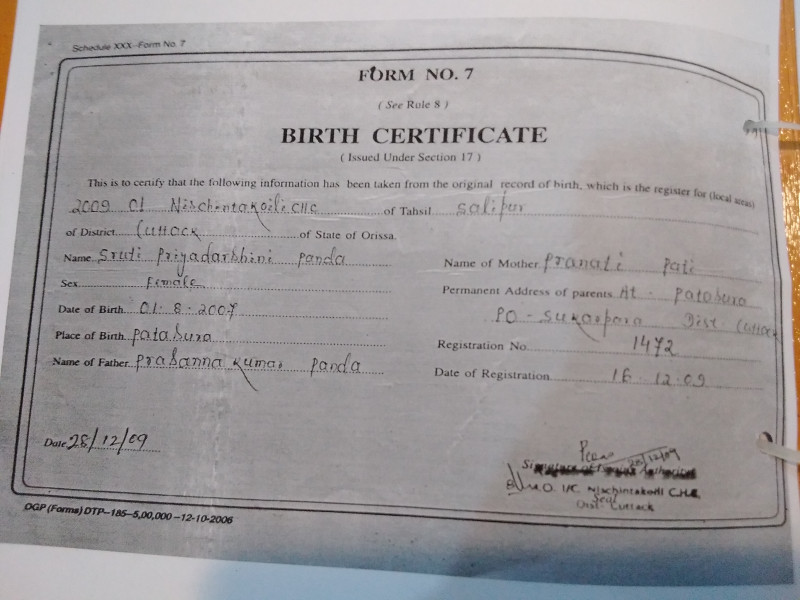 Schedule XXX-Form No. 7
FORM NO. 7
( See Rule 8 )
BIRTH CERTIFICATE
( Issued Under Section 17 )
This is to certify that the following information has been taken from the original record of birth, which is the register for (local areas)
2009 of Nischintakoili CHC of Tahsil Salipur
of District Cuttack of State of Orissa.
Name Sruti Priyadarshini Panda
Sex Female
Date of Birth 01-8-2007
Place of Birth Patabura
Name of Father Prasanna Kumar Panda
Name of Mother Pranati Pati
Permanent Address of parents At - Patabura
PO - Sukarpara Dist - Cuttack
Registration No. 1472
Date of Registration 16-12-09
Date 28/12/09
28/12/09
M.O. I/C. Nischintakoili C.H.C.
Seal
Dist- Cuttack
OGP (Forms) DTP-185-5,00,000-12-10-2006